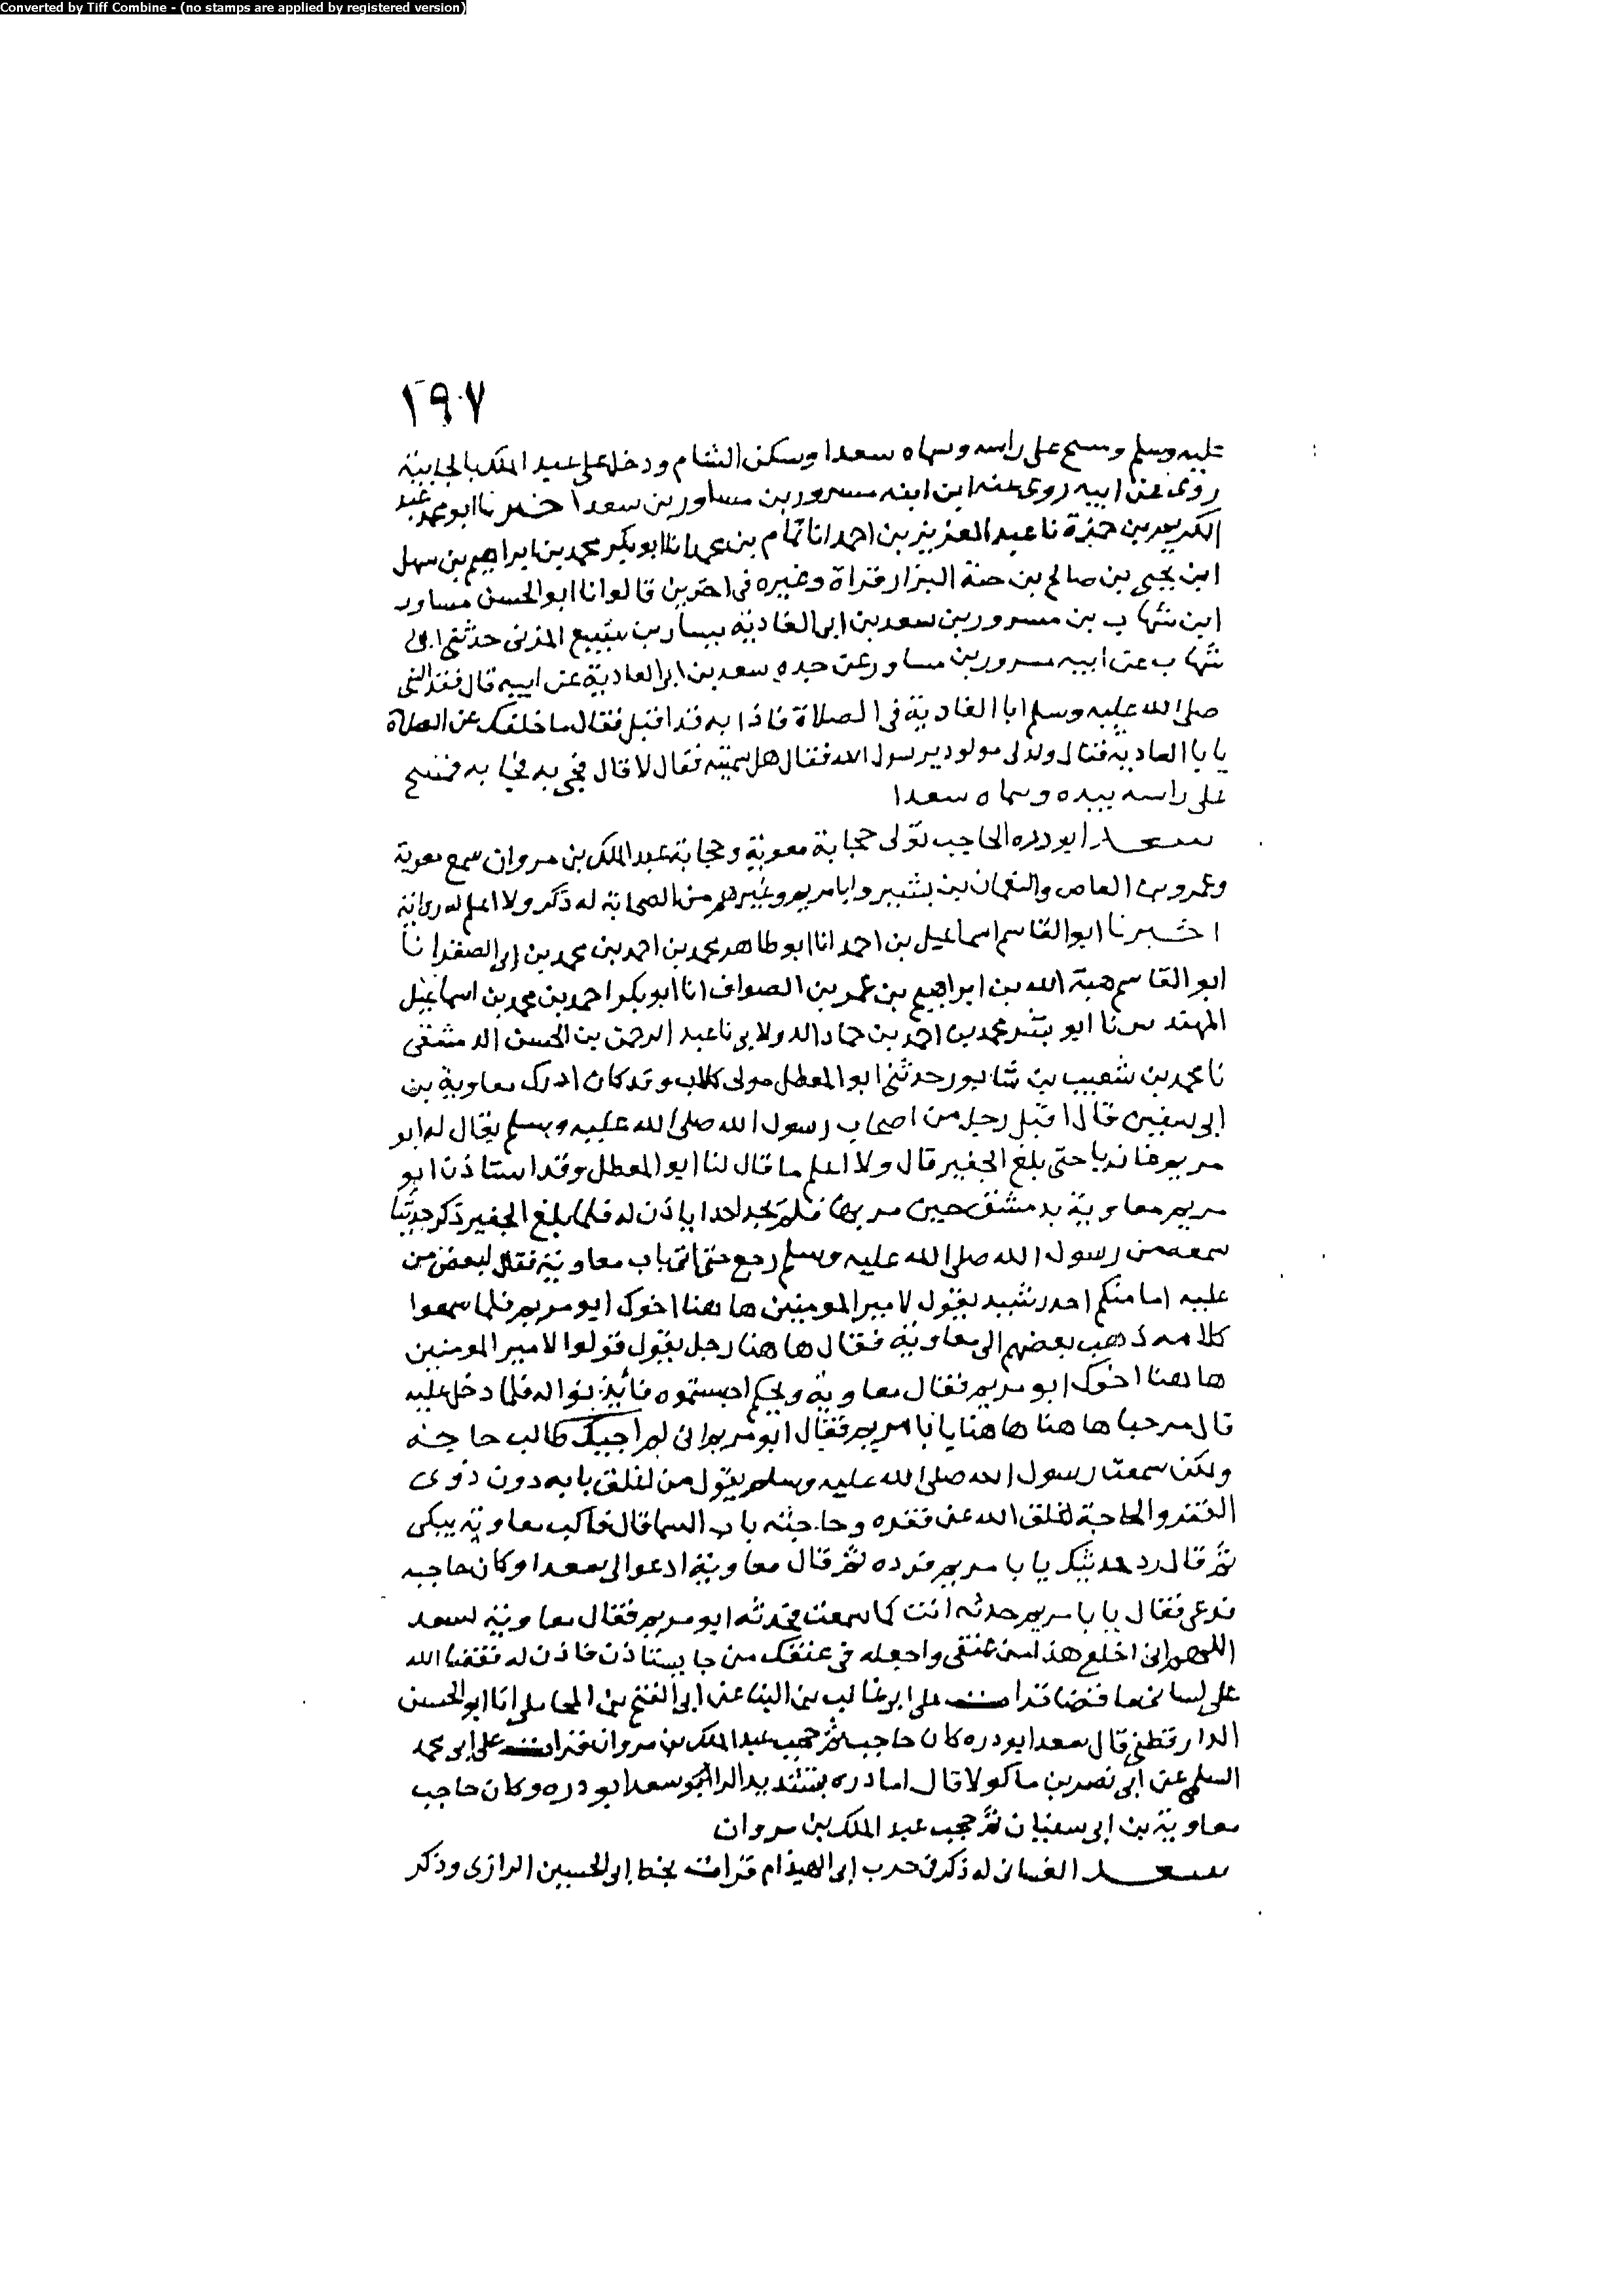 Converted by Tiff Combine - (no stamps are applied by registered version)
١٩٠٧
عليه وسلم ومسح على راسه وسماه سعدا وسكن الشام ودخل على عبد الملك بالجابية
روى عن ابيه روى عنه ابن ابنه مسرور بن مساور بن سعد اخبرنا ابو محمد عبد
الكريم بن حمزة نا عبد العزيز بن احمد انا تمام بن محمد انا ابو بكر محمد بن ابراهيم بن سهل
ابن يحيى بن صالح بن حية البزار قراة وغيره فى اخرين قالوا انا ابو الحسن مساور
ابن شهاب بن مسرور بن سعد بن ابى الغادية يسار بن سبيع المزنى حدثنى ابى
شهاب عن ابيه مسرور بن مساور عن جده سعد بن ابى الغادية عن ابيه قال فقد النبى
صلى الله عليه وسلم ابا الغادية فى الصلاة فاذا به قد اقبل فقال ما خلفك عن الصلاة
يا با العادية فقال ولد لى مولود يرسول الله فقال هل سميته فقال لا قال فجى به فجا به فمسح
على راسه بيده وسماه سعدا
سعد ابو دره الحاجب تولى حجابة معوية وحجابة عبد الملك بن مروان سمع معوية
وعمرو بن العاص والنعمان بن بشير وابا مريم وغيرهم من الصحابة له ذكر ولا اعلم له رواية
اخبرنا ابو القاسم اسماعيل بن احمد انا ابو طاهر محمد بن احمد بن محمد بن ابى الصقر انا
ابو القاسم هبة الله بن ابراهيم بن عمر بن الصواف انا ابو بكر احمد بن محمد بن اسماعيل
المهندس نا ابو بشر محمد بن احمد بن حماد الدولابى نا عبد الرحمن بن الحسن الدمشقى
نا محمد بن شعيب بن شابور حدثنى ابو المعطل مولى كلاب وقد كان ادرك معاوية بن
ابى سفين قال اقبل رجل من اصحاب رسول الله صلى الله عليه وسلم يقال له ابو
مريم غازيا حتى بلغ الجفير قال ولا اعلم ما قال لنا ابو المعطل وقد استاذن ابو
مريم معاوية بدمشق حين مر بها فلم يجد احدا ياذن له فلما بلغ الجفير ذكر حديثا
سمعه من رسول الله صلى الله عليه وسلم رجع حتى اتى باب معاوية فقال لبعض من
عليه اما منكم احد رشيد يقول لامير المومنين ها هنا اخوك ابو مريم فلما سمعوا
كلامه ذهب بعضهم الى معاوية فقال ها هنا رجل يقول قولوا لامير المومنين
ها هنا اخوك ابو مريم فقال معاوية ويحكم احبستموه فأيذنوا له فلما دخل عليه
قال مرحبا ها هنا ها هنا يا با مريم فقال ابو مريم انى لم اجيك طالب حاجة
ولكن سمعت رسول الله صلى الله عليه وسلم يقول من اغلق بابه دون ذوى
الفقر والحاجة اغلق الله عن فقره وحاجته باب السما قال فاكب معاوية يبكى
ثم قال رد حديثك يا با مريم فرده ثم قال معاوية ادعوا لى سعدا وكان حاجبه
فدعى فقال يا با مريم حدثه انت كما سمعت فحدثه ابو مريم فقال معاوية لسعد
اللهم انى اخلع هذا من عنقى واجعله فى عنقك من جا يستاذن فاذن له يقضى الله
على لسانى ما قضا قرات على ابى غالب بن البنا عن ابى الفتح بن المحاملى انا ابو الحسن
الدارقطنى قال سعد ابو دره كان حاجب ثم حجب عبد الملك بن مروان قرات على ابى محمد
السلمى عن ابى نصر بن ماكولا قال اما دره بتشديد الرا فهو سعد ابو دره وكان حاجب
معاوية بن ابى سفيان ثم حجب عبد الملك بن مروان
سعد الغسانى له ذكر فى حرب ابى الهيذام قرات بخط ابى الحسين الرازى وذكر